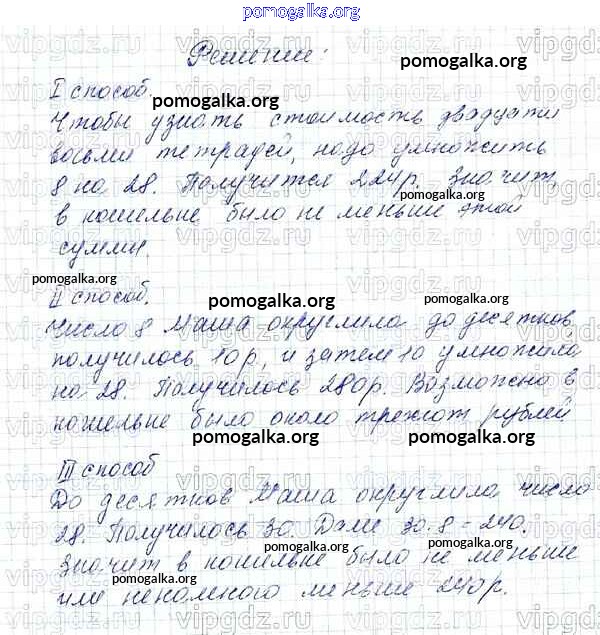 pomogalka.org
Решение:
pomogalka.org
I способ.
pomogalka.org
Чтобы узнать стоимость двадцати
восьми тетрадей, надо умножить
8 на 28. Получится 224р. Значит,
pomogalka.org
в кошельке было не меньше этой
суммы.
pomogalka.org
II способ.
pomogalka.org
pomogalka.org
Число 8 Маша округлила до десятков,
получилось 10р, и затем 10 умножила
на 28. Получилось 280р. Возможно в
кошельке было около трехсот рублей
pomogalka.org
pomogalka.org
III способ
До десятков Маша округлила число
28. Получилось 30. Далее 30·8=240.
pomogalka.org
pomogalka.org
Значит в кошельке было не меньше
pomogalka.org
или немного меньше 240р.
pomogalka.org